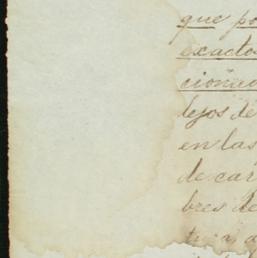 que po
exacto
ciones
lejos de
en las
de car
bres de